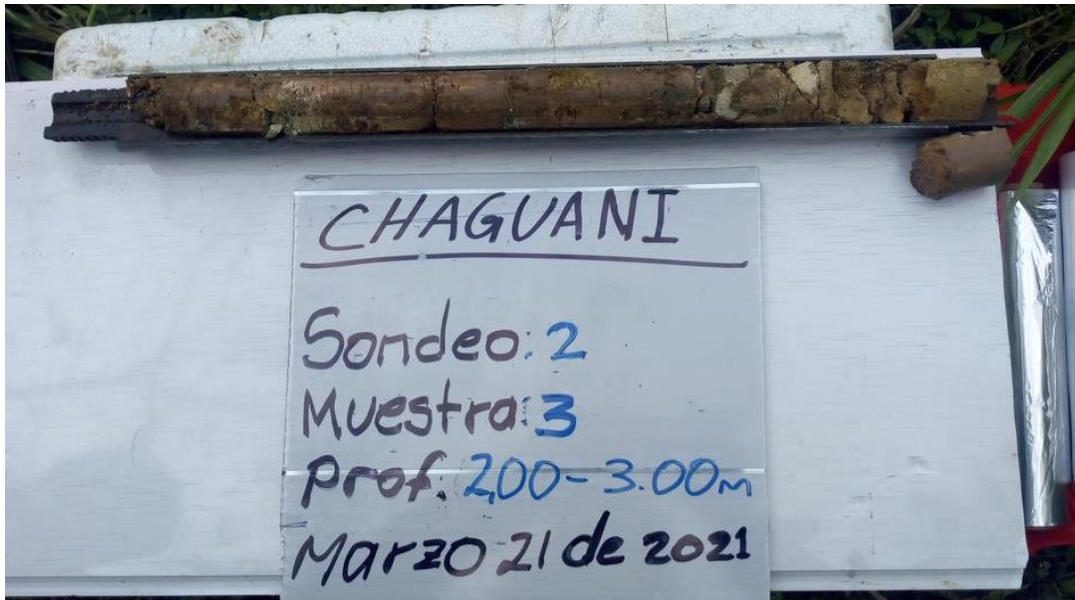 CHAGUANI
Sondeo: 2
Muestra: 3
Prof. 2,00-3.00m
Marzo 21 de 2021